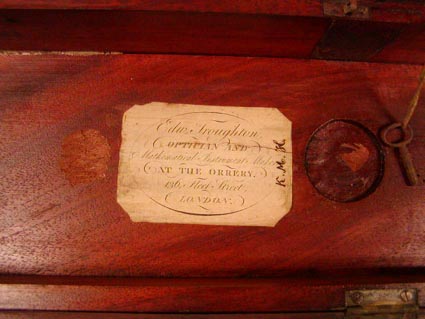 Edwd. Troughton,
OPTICIAN AND
Mathematical Instrument Maker
AT THE ORRERY,
136, Fleet Street,
LONDON.
K.M.H.